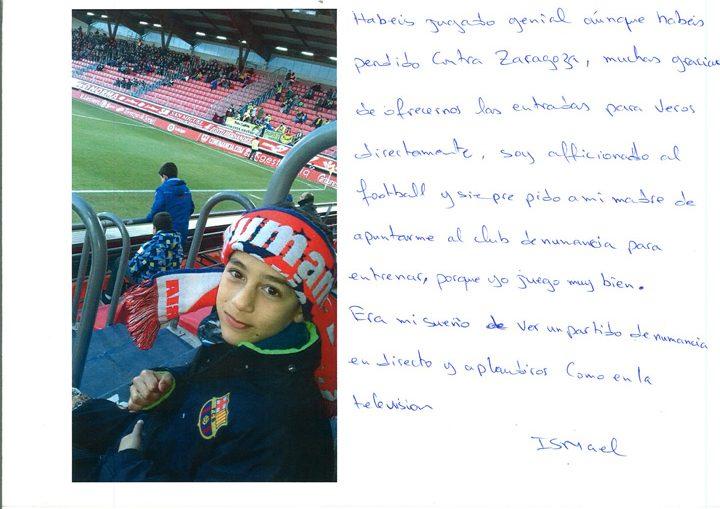 Habeis jugado genial aúnque habeis
perdido contra Zaragoza, muchas gracias
de ofrecernos las entradas para veros
directamente, soy afficionado al
football y siepre pido a mi madre de
apuntarme al club de numancia para
entrenar, porque yo juego muy bien.
Era mi sueño de ver un partido de numancia
en directo y aplaudiros como en la
television
ISMael
SAN MIGUEL
CDNUMANCIA.COM
uman